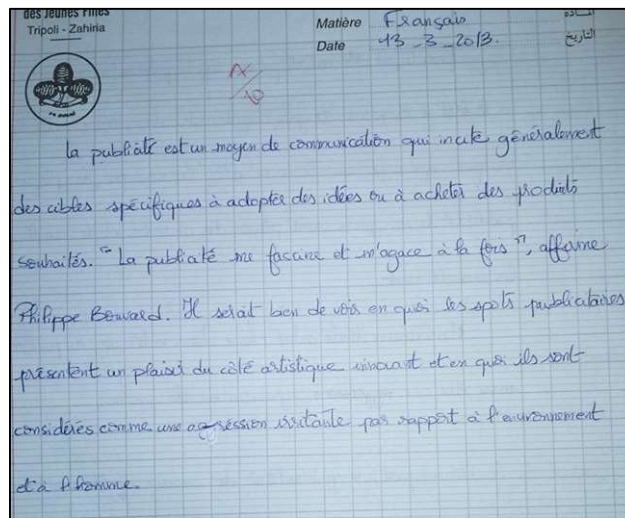 des Jeunes Filles
Tripoli - Zahiria
Matière Français المادة
Date 13-3-2013. التاريخ
/10
la publicité est un moyen de communication qui incite généralement
des cibles spécifiques à adopter des idées ou à acheter des produits
souhaités. "La publicité me fascine et m'agace à la fois", affirme
Philippe Bouvard. Il serait bon de voir en quoi les spots publicitaires
présentent un plaisir du côté artistique innovant et en quoi ils sont
considérés comme une agression irritante par rapport à l'environnement
et à l'homme.